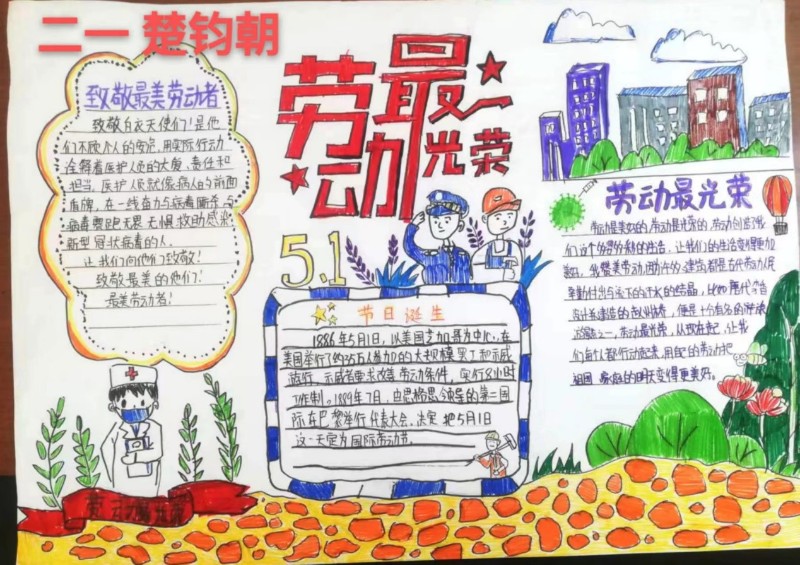 二一 楚钧朝
劳动最光荣
致敬最美劳动者
致敬白衣天使们！是他
们不顾个人的安危，用实际行动
诠释着医护人员的大爱、责任和
担当。医护人员就像病人的前面
盾牌，在一线奋力与病毒厮杀，与
病毒赛跑无畏无惧救助感染
新型冠状病毒的人。
让我们向他们致敬！
致敬最美的他们！
最美劳动者！
5.1
节日诞生
1886年5月1日，以美国芝加哥为中心，在
美国举行了约35万人参加的大规模罢工和示威
游行，示威者要求改善劳动条件，实行8小时
工作制。1889年7月，由恩格思领导的第二国
际在巴黎举行代表大会，决定把5月1日
这一天定为国际劳动节。
劳动最光荣
劳动是美好的，劳动最光荣的，劳动创造了我
们这个的生活，让我们的生活变得更加
美好。我赞美劳动，国内外的建筑都是古代劳动人民
辛勤付出与流下的汗水的结晶，比如唐代
设计建造的赵州桥，便是十分有名的
之一，劳动最光荣，从现在起，让我
们每个人都行动起来，用自己的劳动把
祖国家庭的明天变得更美好。
劳动最光荣